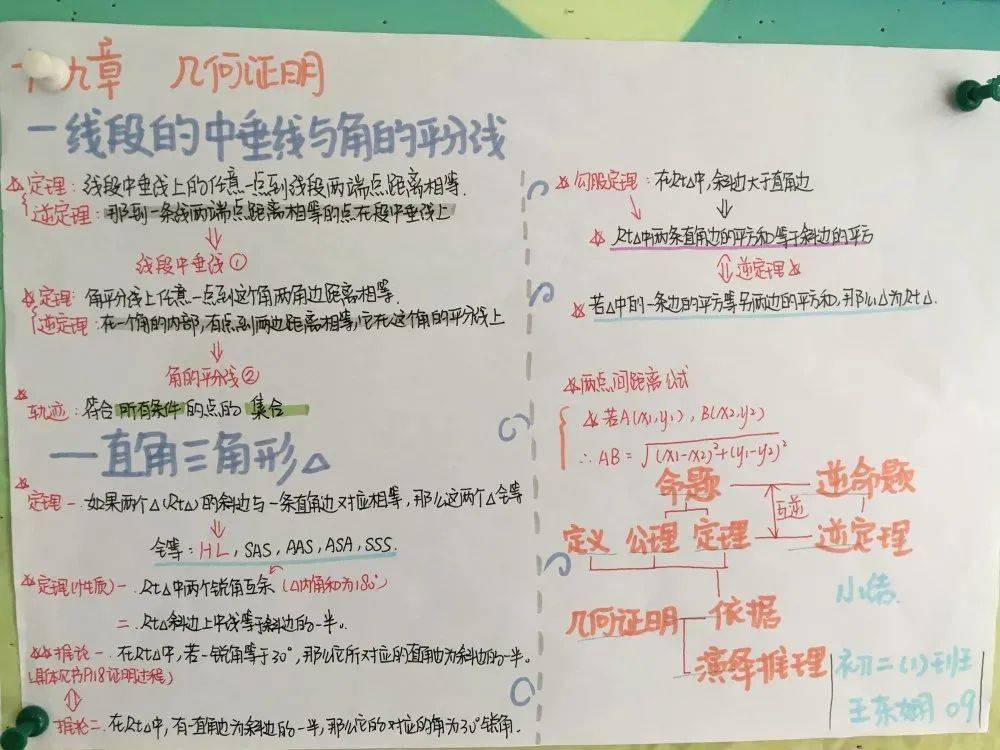 十九章 几何证明
一线段的中垂线与角的平分线
定理：线段中垂线上的任意一点到线段两端点距离相等.
逆定理：那到一条线两端点距离相等的点在段中垂线上
线段中垂线①
定理：角平分线上任意一点到这个角两角边距离相等.
逆定理：在一个角的内部，有点到两边距离相等，它在这个角的平分线上
角的平分线②
轨迹：符合所有条件的点的集合
一直角三角形△
定理一 如果两个△(Rt△)的斜边与一条直角边对应相等，那么这两个△全等
全等：HL，SAS，AAS，ASA，SSS.
定理(性质)一 .Rt△中两个锐角互余（△内角和为180°）
二 .Rt△斜边上中线等于斜边的一半。
推论一 .在Rt△中，若一锐角等于30°，那么它所对应的直角边为斜边的一半。
证明过程）
推论二 .在Rt△中，有一直角边为斜边的一半，那么它的对应的角为30°锐角.
勾股定理：在Rt△中，斜边大于直角边
Rt△中两条直角边的平方和等于斜边的平方
逆定理
若△中的一条边的平方等另两边的平方和，那么△为Rt△.
两点间距离公式
若A(x1,y1)，B(x2,y2)
∴AB=√(x1-x2)²+(y1-y2)²
命题 逆命题
互逆
定义 公理 定理 逆定理
小结.
几何证明 依据
演绎推理
初二(1)班
王东 09